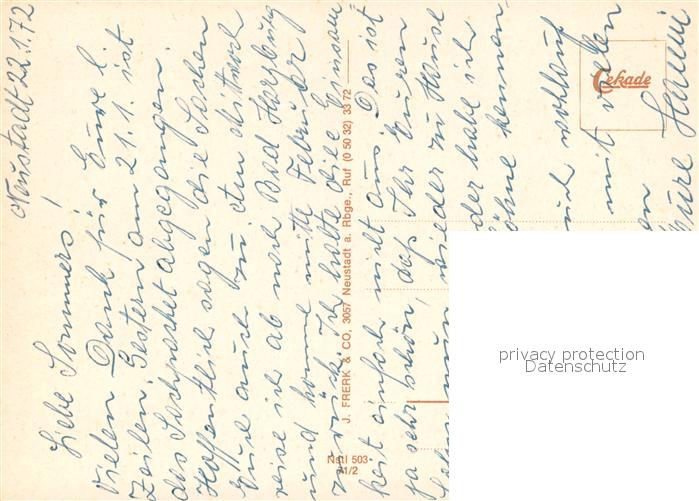 Neustadt 22.1.72
Liebe Sommers!
Vielen Dank für Eure l.
Zeilen. Gestern am 21.1. ist
das Sachpacket abgegangen.
Hoffentlich sagen die Sachen
Euch auch zu. Am Mittwoch
reise ich ab nach Bad Harzburg
und komme mitte Februar
zurück. Ich halte die Einsam
keit einfach nicht aus. Es ist
ja sehr schön, daß Ihr Euren
Sohn nun wieder zu Hause
der habe ich
Söhne kennen-
auch wohlauf
mit vielen
Eure
J. FRERK & CO, 3057 Neustadt a. Rbge., Ruf (0 50 32) 33 72
Nstl 503
71/2
Cekade
privacy protection
Datenschutz